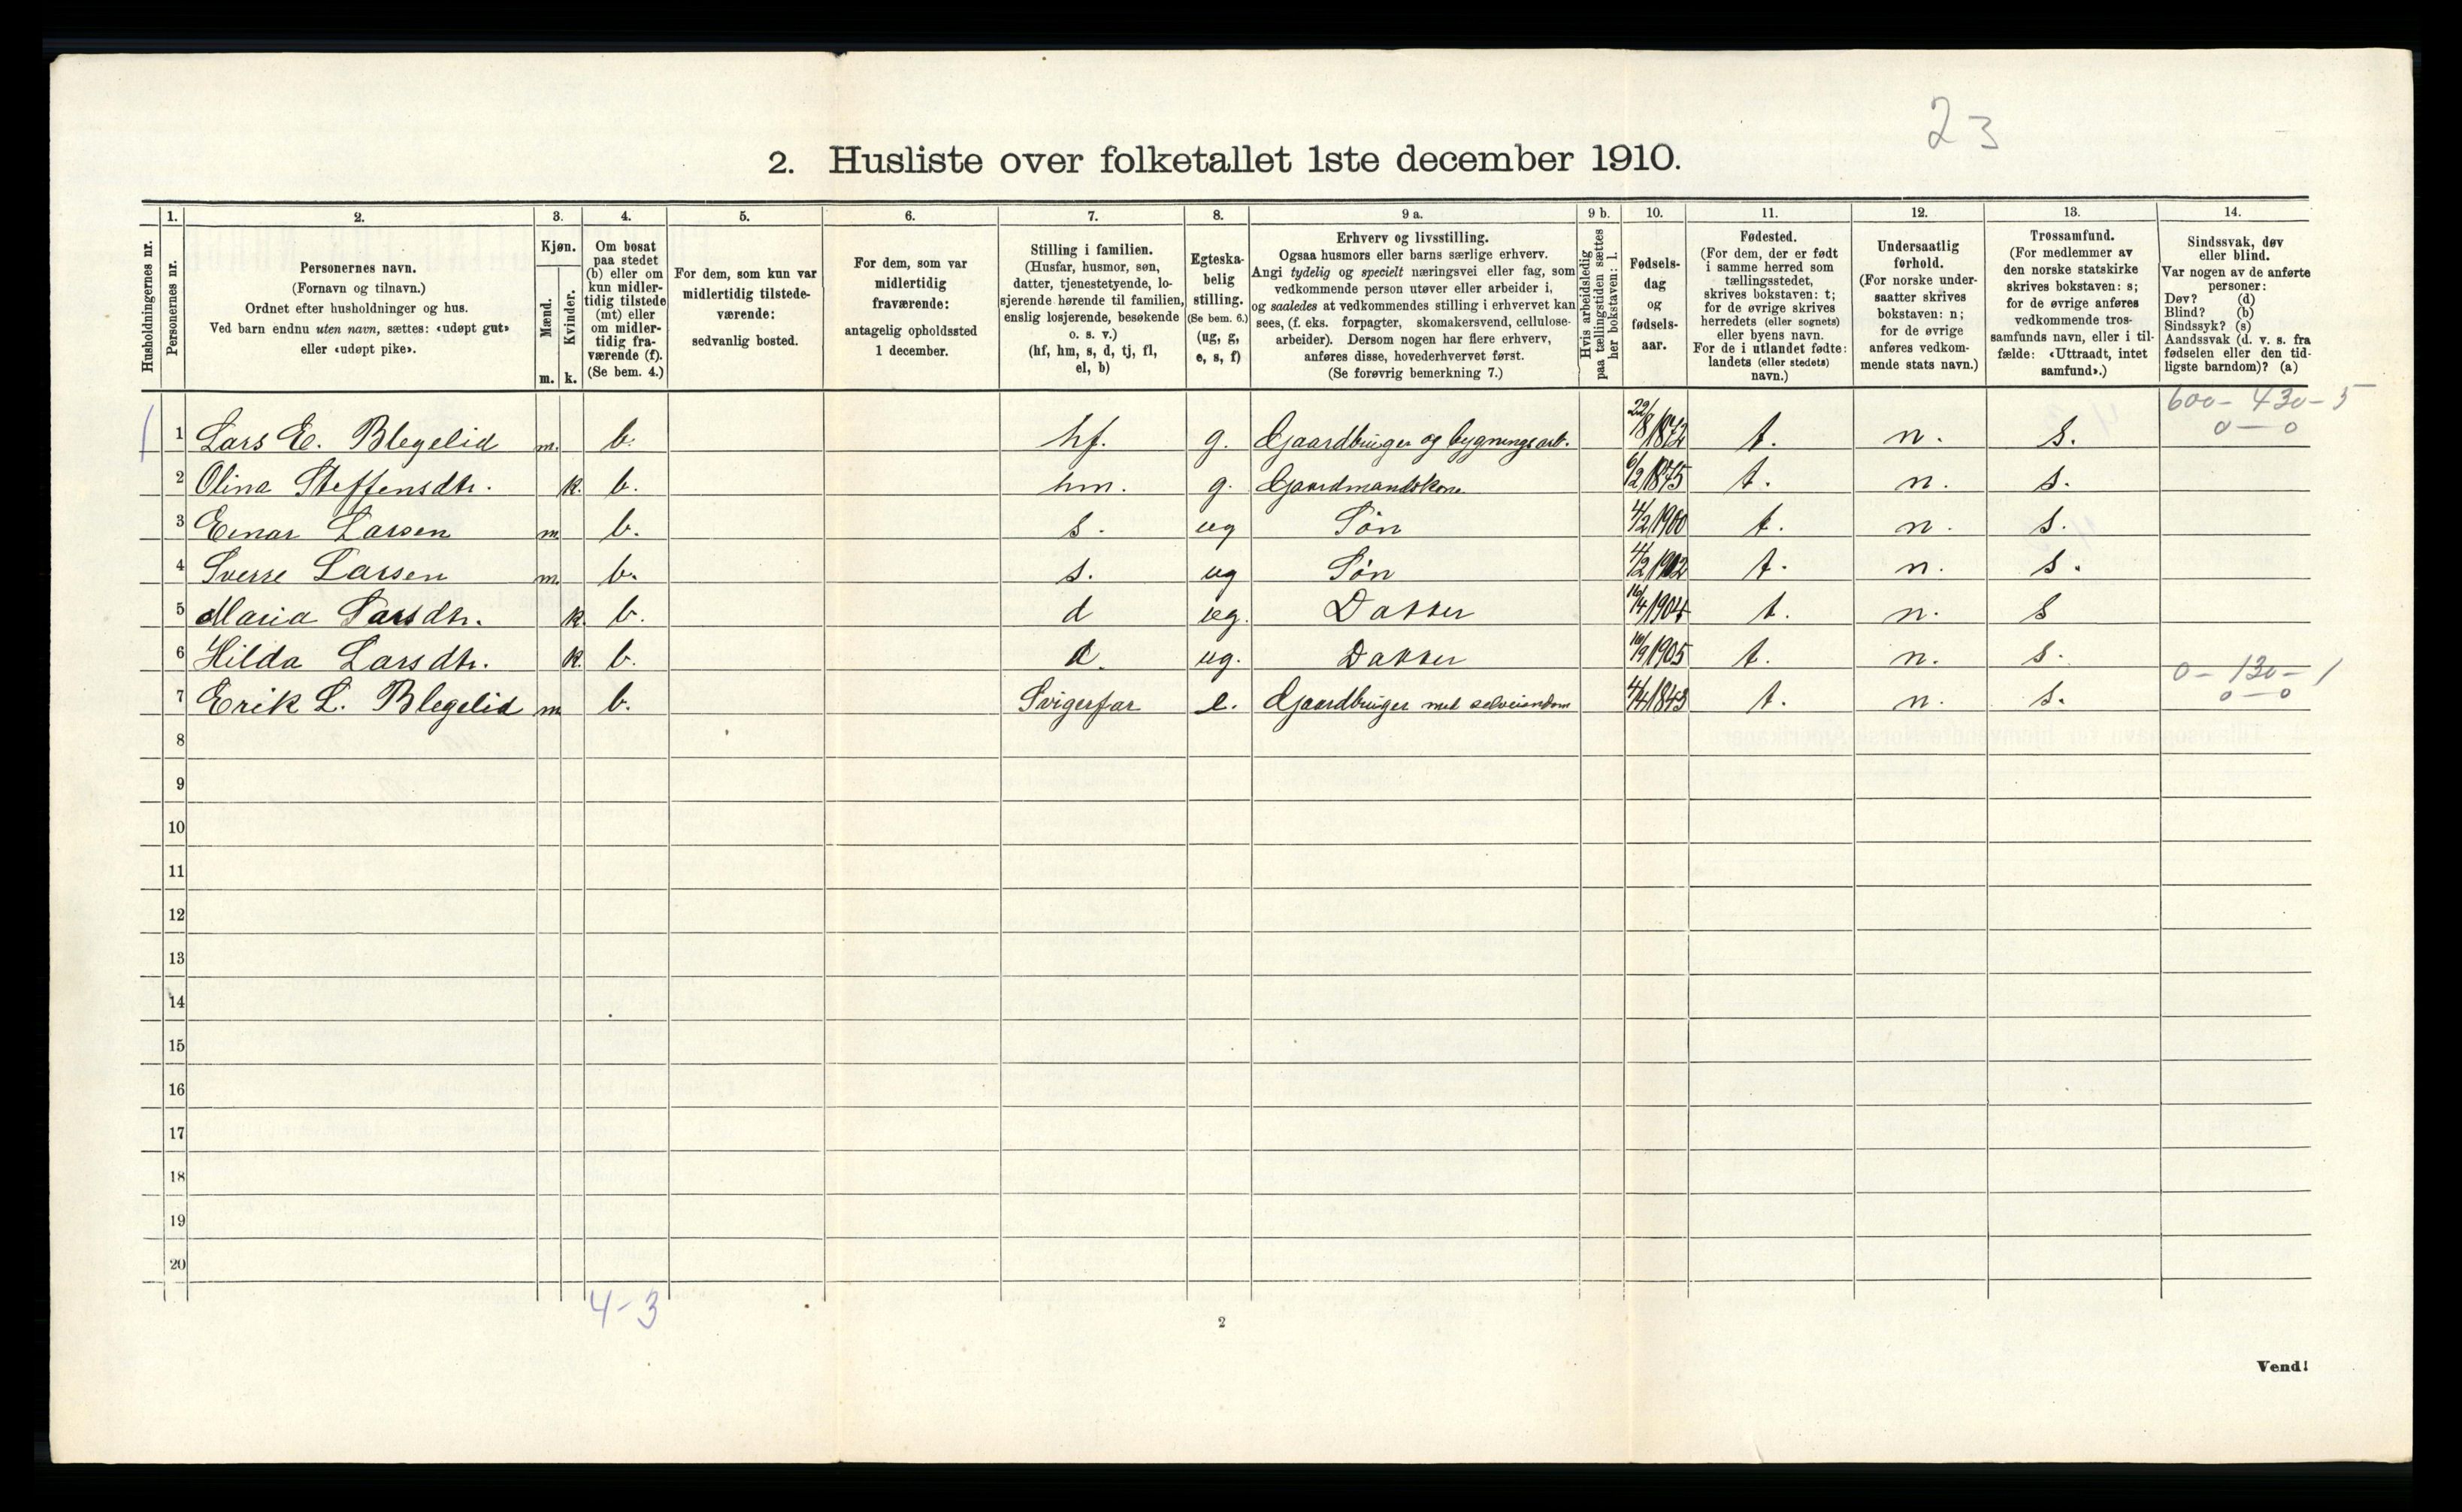 23
2. Husliste over folketallet 1ste december 1910.
Husholdningernes nr.
1.
Personernes nr.
2.
Personernes navn.
(Fornavn og tilnavn.)
Ordnet efter husholdninger og hus.
Ved barn endnu uten navn, sættes: «udøpt gut»
eller «udøpt pike».
3.
Kjøn.
Mænd.
Kvinder.
m. k.
4.
Om bosat
paa stedet
(b) eller om
kun midler-
tidig tilstede
(mt) eller
om midler-
tidig fra-
værende (f).
(Se bem. 4.)
5.
For dem, som kun var
midlertidig tilstede-
værende:
sedvanlig bosted.
6.
For dem, som var
midlertidig
fraværende:
antagelig opholdssted
1 december.
7.
Stilling i familien.
(Husfar, husmor, søn,
datter, tjenestetyende, lo-
sjerende hørende til familien,
enslig losjerende, besøkende
o. s. v.)
(hf, hm, s, d, tj, fl,
el, b)
8.
Egteska-
belig
stilling.
(Se bem. 6.)
(ug, g,
e, s, f)
9 a.
Erhverv og livsstilling.
Ogsaa husmors eller barns særlige erhverv.
Angi tydelig og specielt næringsvei eller fag, som
vedkommende person utøver eller arbeider i,
og saaledes at vedkommendes stilling i erhvervet kan
sees, (f. eks. forpagter, skomakersvend, cellulose-
arbeider). Dersom nogen har flere erhverv,
anføres disse, hovederhvervet først.
(Se forøvrig bemerkning 7.)
9 b.
Hvis arbeidsledig
paa tællingstiden sættes
her bokstaven: l.
10.
Fødsels-
dag
og
fødsels-
aar.
11.
Fødested.
(For dem, der er født
i samme herred som
tællingsstedet,
skrives bokstaven: t;
for de øvrige skrives
herredets (eller sognets)
eller byens navn.
For de i utlandet fødte:
landets (eller stedets)
navn.)
12.
Undersaatlig
forhold.
(For norske under-
saatter skrives
bokstaven: n;
for de øvrige
anføres vedkom-
mende stats navn.)
13.
Trossamfund.
(For medlemmer av
den norske statskirke
skrives bokstaven: s;
for de øvrige anføres
vedkommende tros-
samfunds navn, eller i til-
fælde: «Uttraadt, intet
samfund».)
14.
Sindssvak, døv
eller blind.
Var nogen av de anførte
personer:
Døv? (d)
Blind? (b)
Sindssyk? (s)
Aandssvak (d. v. s. fra
fødselen eller den tid-
ligste barndom)? (a)
600 – 430 – 5
0 – 0
1 Lars E. Blegelid m. b. hf. g. Gaardbruger og bygningsarb. 22/8 1872 t. n. s.
2 Olina Steffensdtr. k. b. hm. g. Gaardmandskone 6/2 1875 t. n. s.
3 Einar Larsen m. b. s. ug Søn 4/2 1900 t. n. s.
4 Sverre Larsen m. b. s. ug Søn 4/2 1902 t. n. s.
5 Maria Larsdtr. k. b. d ug. Datter 16/4 1904 t. n. s
6 Hilda Larsdtr. k. b. d. ug. Datter 1905 t. n. s.
0 – 130 – 1
0 – 0
7 Erik L. Blegelid m b. Svigerfar e. Gaardbruger med selveiendom 4/4 1843 t. n. s.
8
9
10
11
12
13
14
15
16
17
18
19
20
4-3
2
Vend!